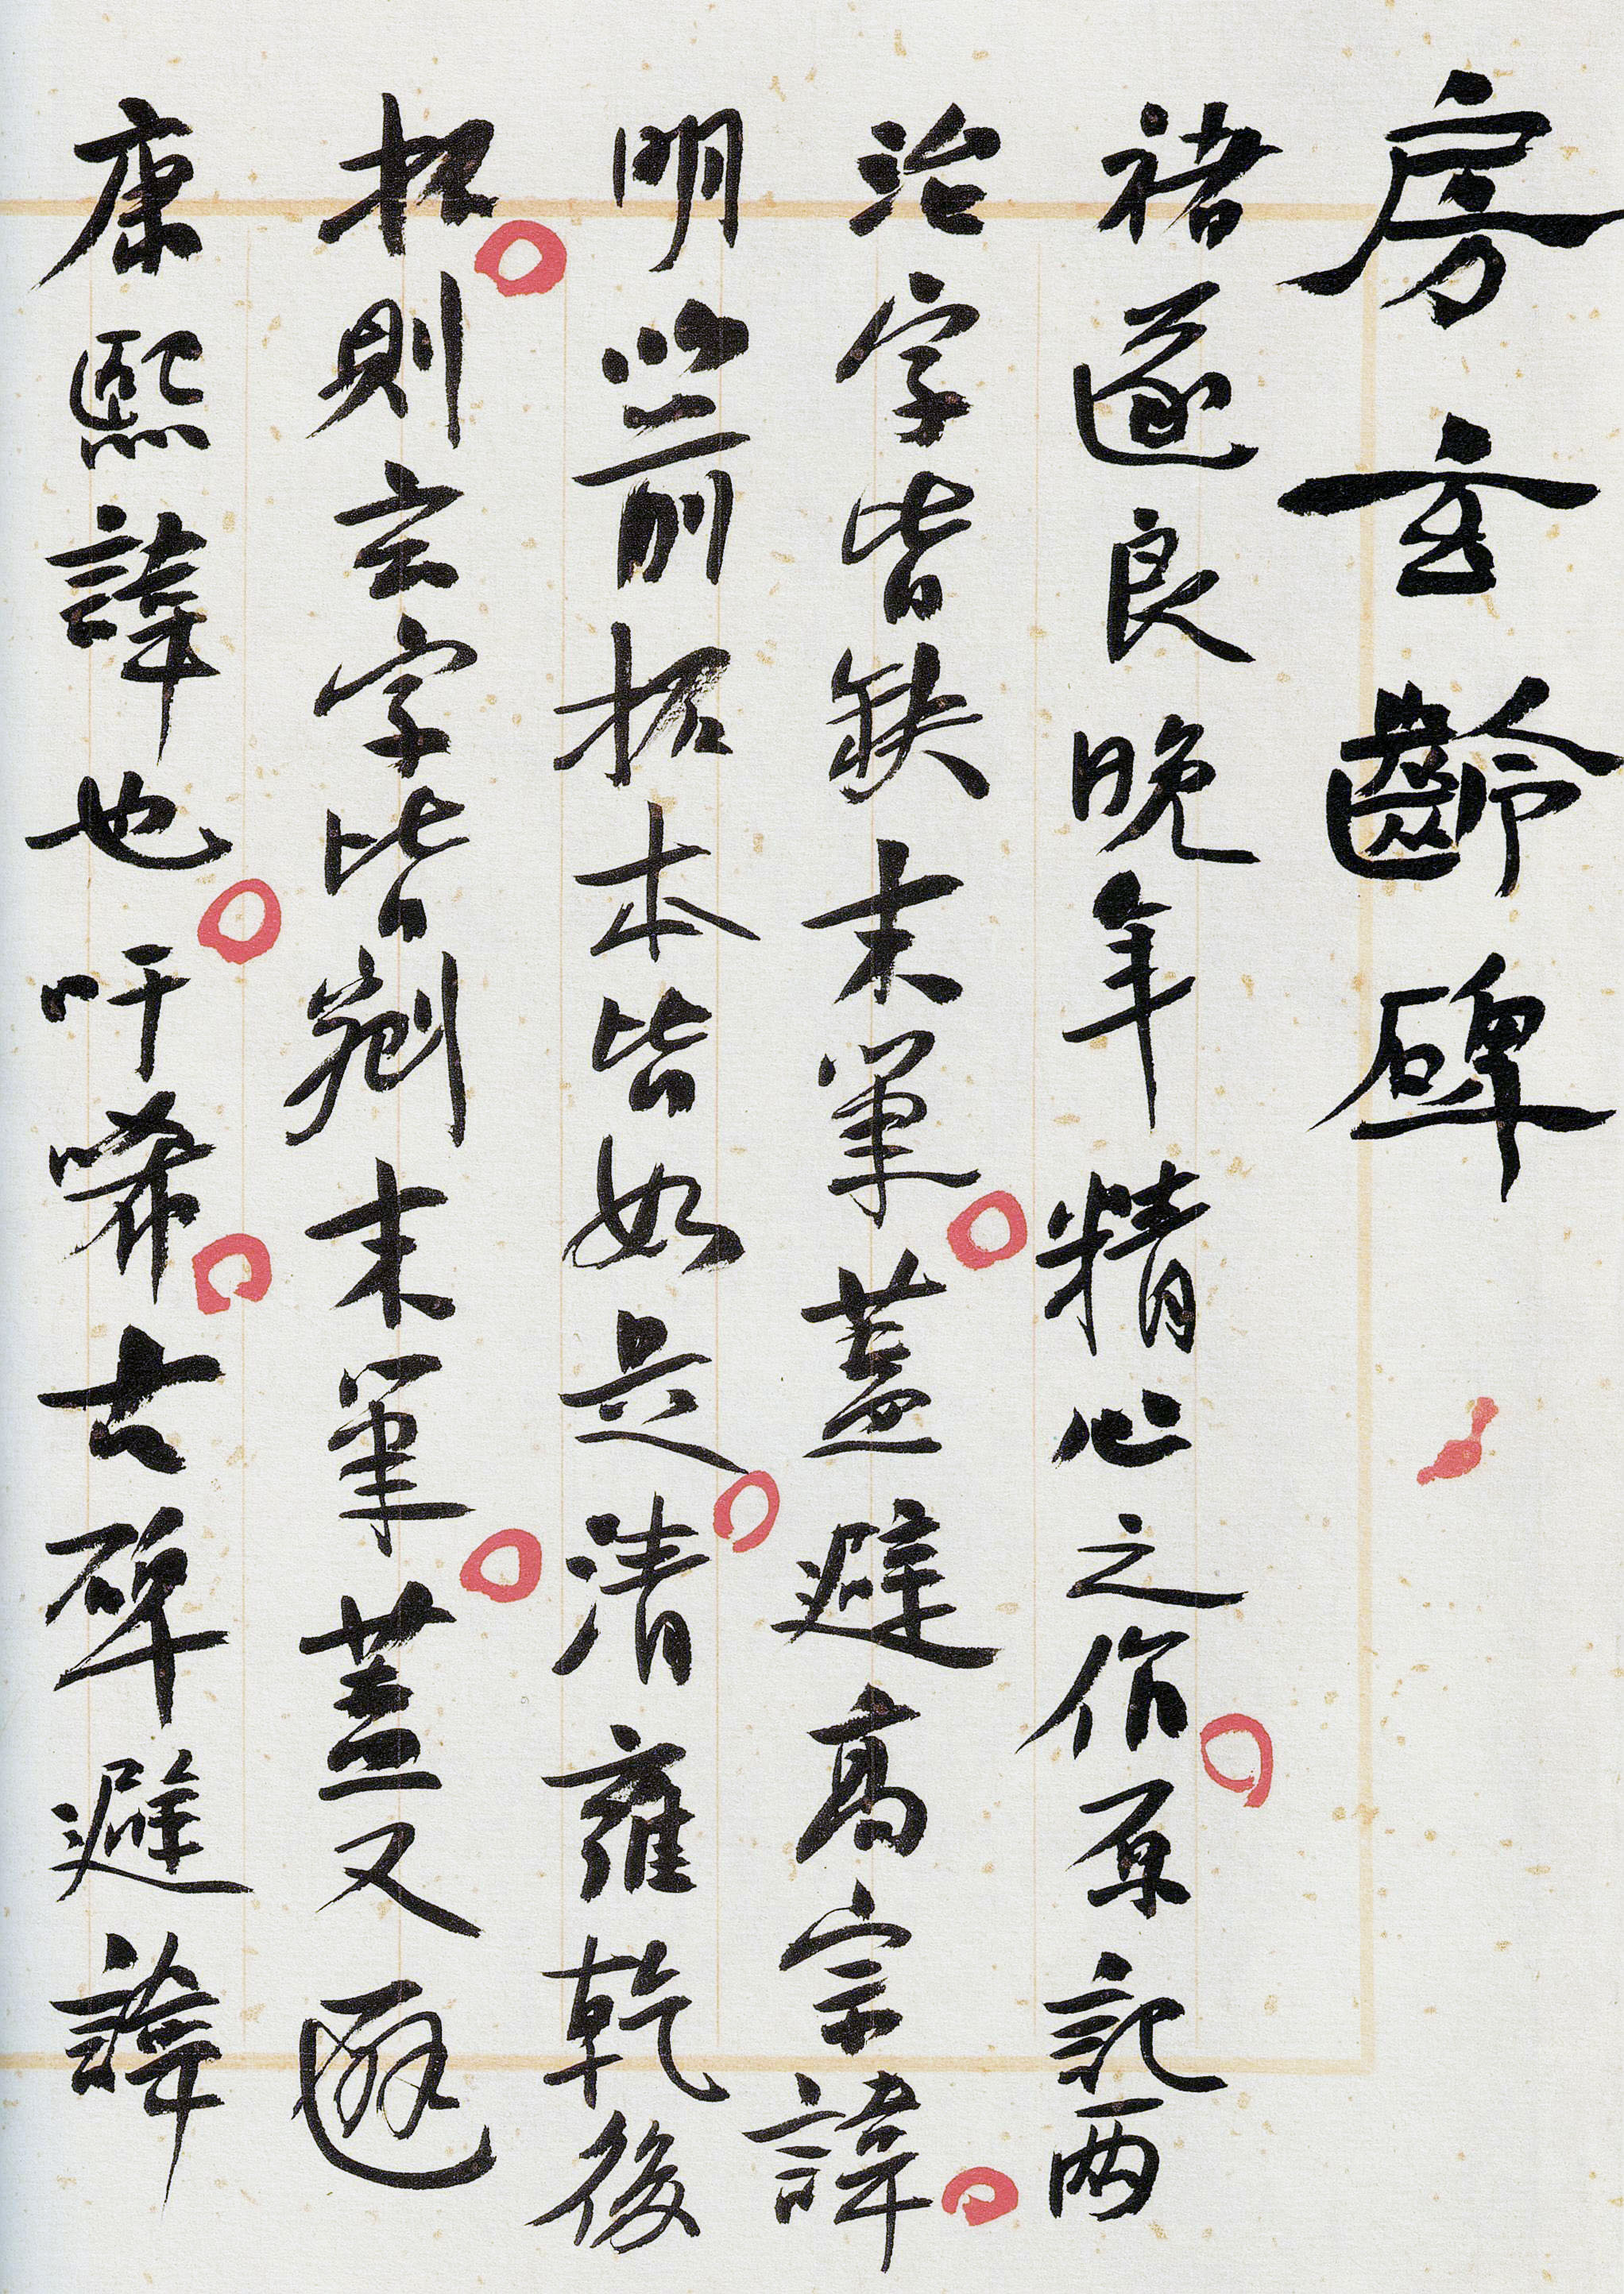 房玄齡碑
褚遂良晚年精心之作。原記两
治字皆缺末筆。蓋避高宗諱。
明以前拓本皆如是。清雍乾後
拓。則玄字皆剜末筆。蓋又避
康熙諱也。吁唏。古碑避諱